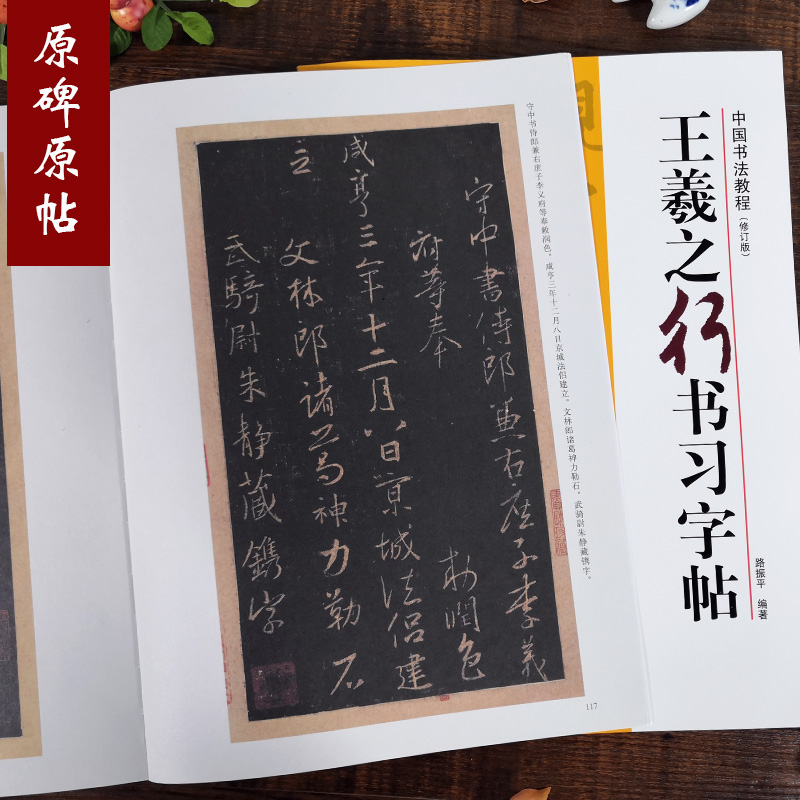 原碑原帖
守中书侍郎兼右庶子李义府等奉敕润色。咸亨三年十二月八日京城法侣建立。文林郎诸葛神力勒石。武骑尉朱静藏镌字。
守中書侍郎兼右庶子李義
府等奉
敕潤色
咸亨三年十二月八日京城法侶建
立
文林郎諸葛神力勒石
武騎尉朱靜藏鐫字
117
中国书法教程(修订版)
王羲之行书习字帖
路振平 编著